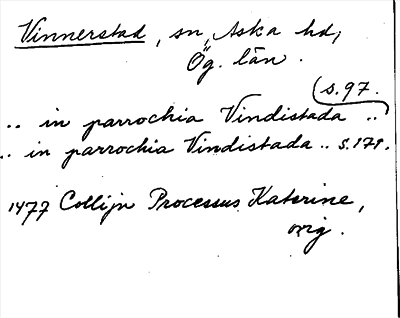 Vinnerstad, sn, Aska hd,
Ög. län.
(s. 97.
.. in parrochia Vindistada ..
.. in parrochia Vindistada .. s. 171.
1477 Collijn Processus Katerine,
orig.